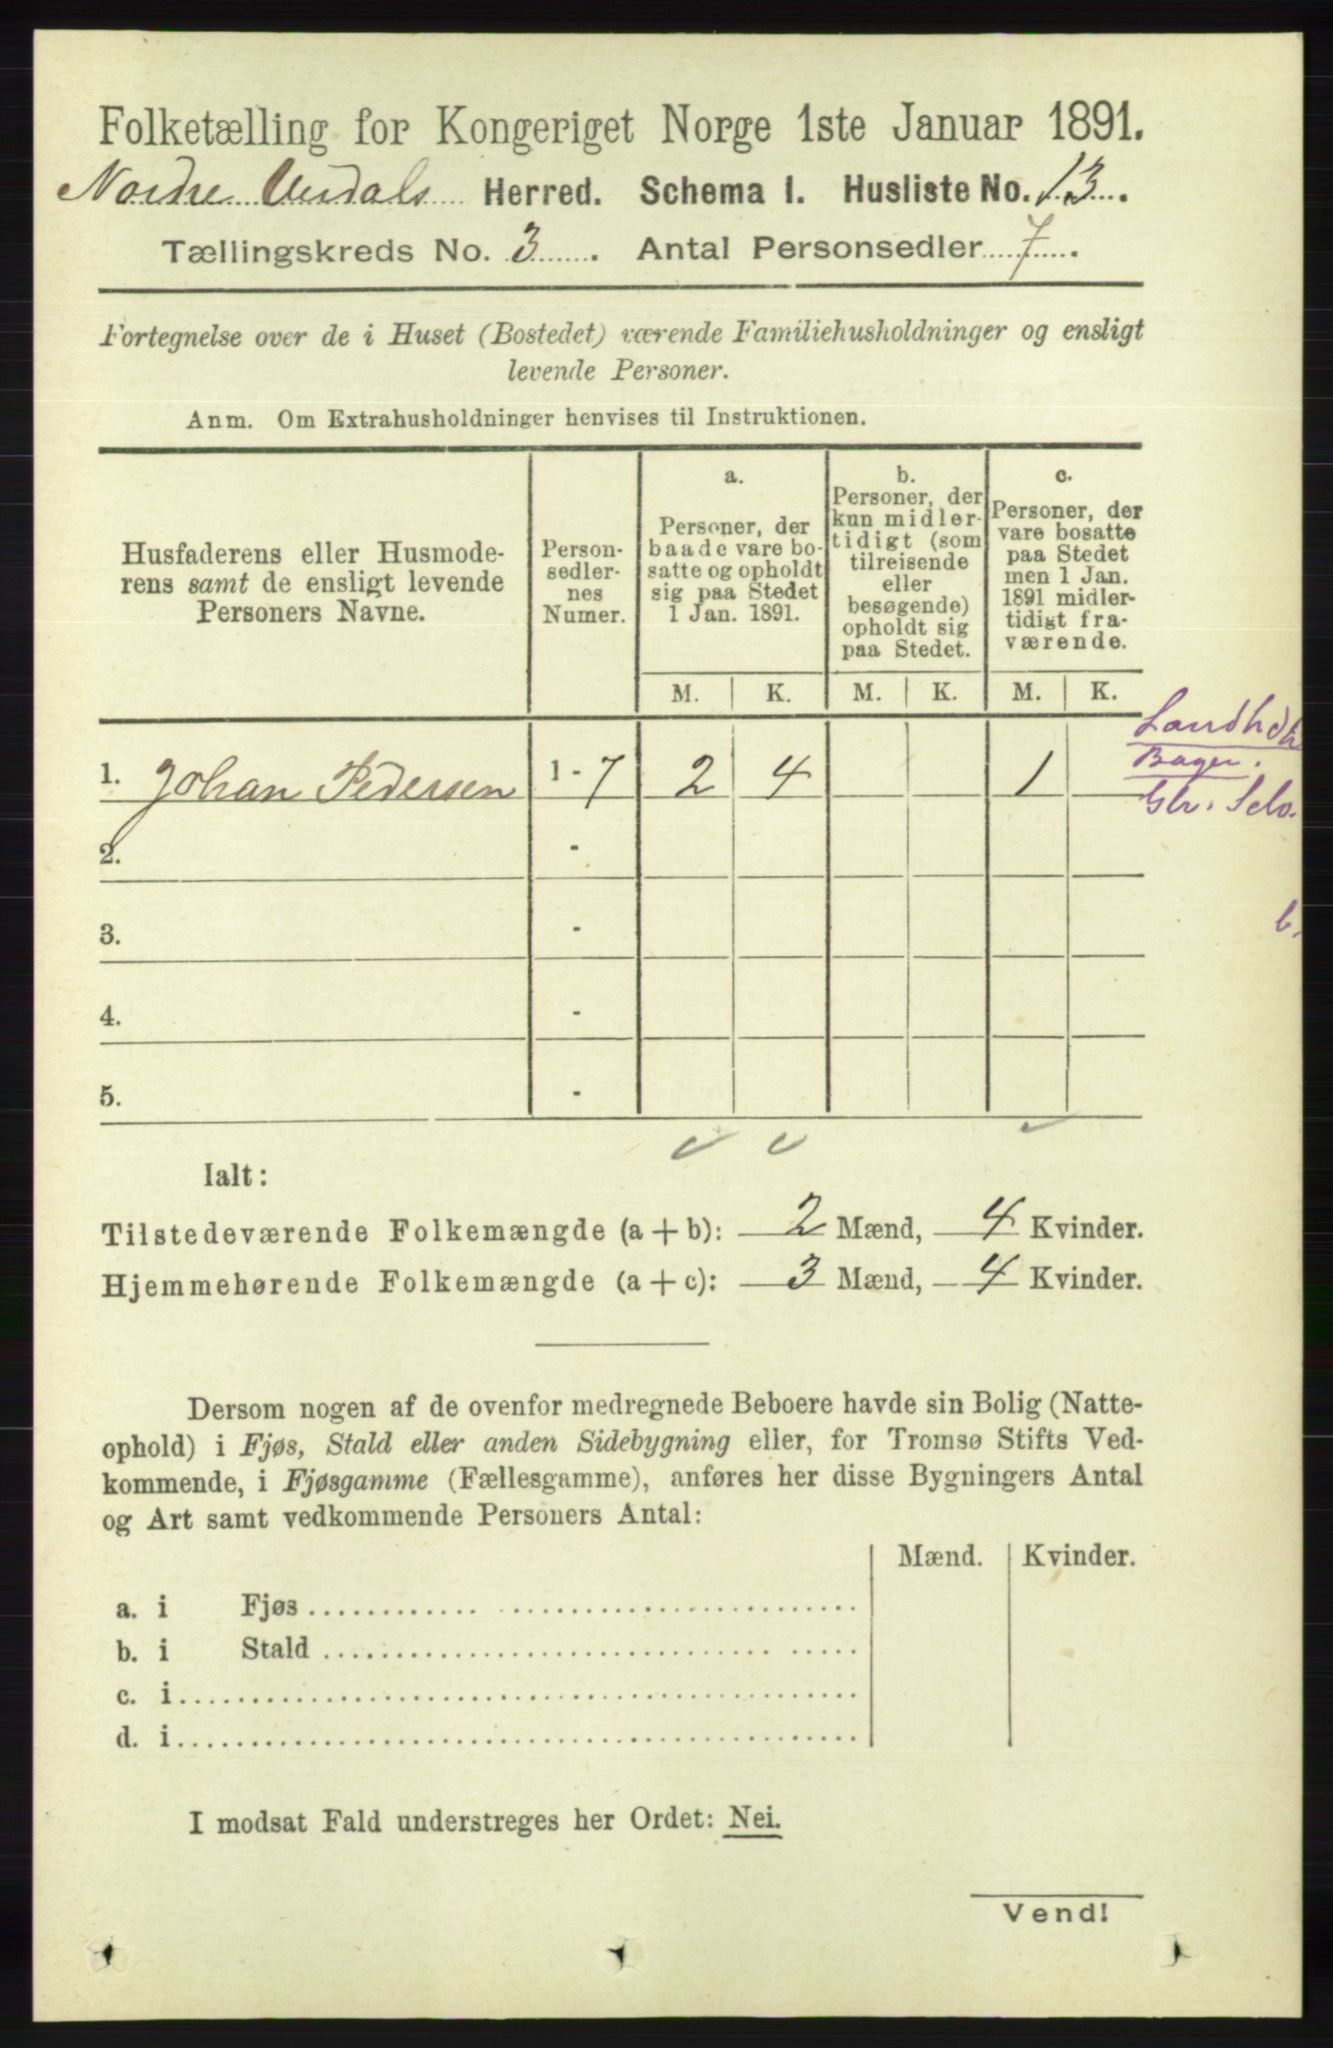 Folketælling for Kongeriget Norge 1ste Januar 1891.
Nordre Undals Herred. Schema I. Husliste No. 13.
Tællingskreds No. 3. Antal Personsedler 7.
Fortegnelse over de i Huset (Bostedet) værende Familiehusholdninger og ensligt
levende Personer.
Anm. Om Extrahusholdninger henvises til Instruktionen.
Husfaderens eller Husmode-
rens samt de ensligt levende
Personers Navne.
Person-
sedler-
nes
Numer.
a.
Personer, der
baade vare bo-
satte og opholdt
sig paa Stedet
1 Jan. 1891.
b.
Personer, der
kun midler-
tidigt (som
tilreisende
eller
besøgende)
opholdt sig
paa Stedet.
c.
Personer, der
vare bosatte
paa Stedet
men 1 Jan.
1891 midler-
tidigt fra-
værende.
M. K. M. K. M. K.
1. Johan Pedersen 1 - 7 2 4 1
Bager.
2. -
3. -
b.
4. -
5. -
Ialt:
Tilstedeværende Folkemængde (a + b): 2 Mænd, 4 Kvinder.
Hjemmehørende Folkemængde (a + c): 3 Mænd, 4 Kvinder.
Dersom nogen af de ovenfor medregnede Beboere havde sin Bolig (Natte-
ophold) i Fjøs, Stald eller anden Sidebygning eller, for Tromsø Stifts Ved-
kommende, i Fjøsgamme (Fællesgamme), anføres her disse Bygningers Antal
og Art samt vedkommende Personers Antal:
Mænd. Kvinder.
a. i Fjøs
b. i Stald
c. i
d. i
I modsat Fald understreges her Ordet: Nei.
Vend!